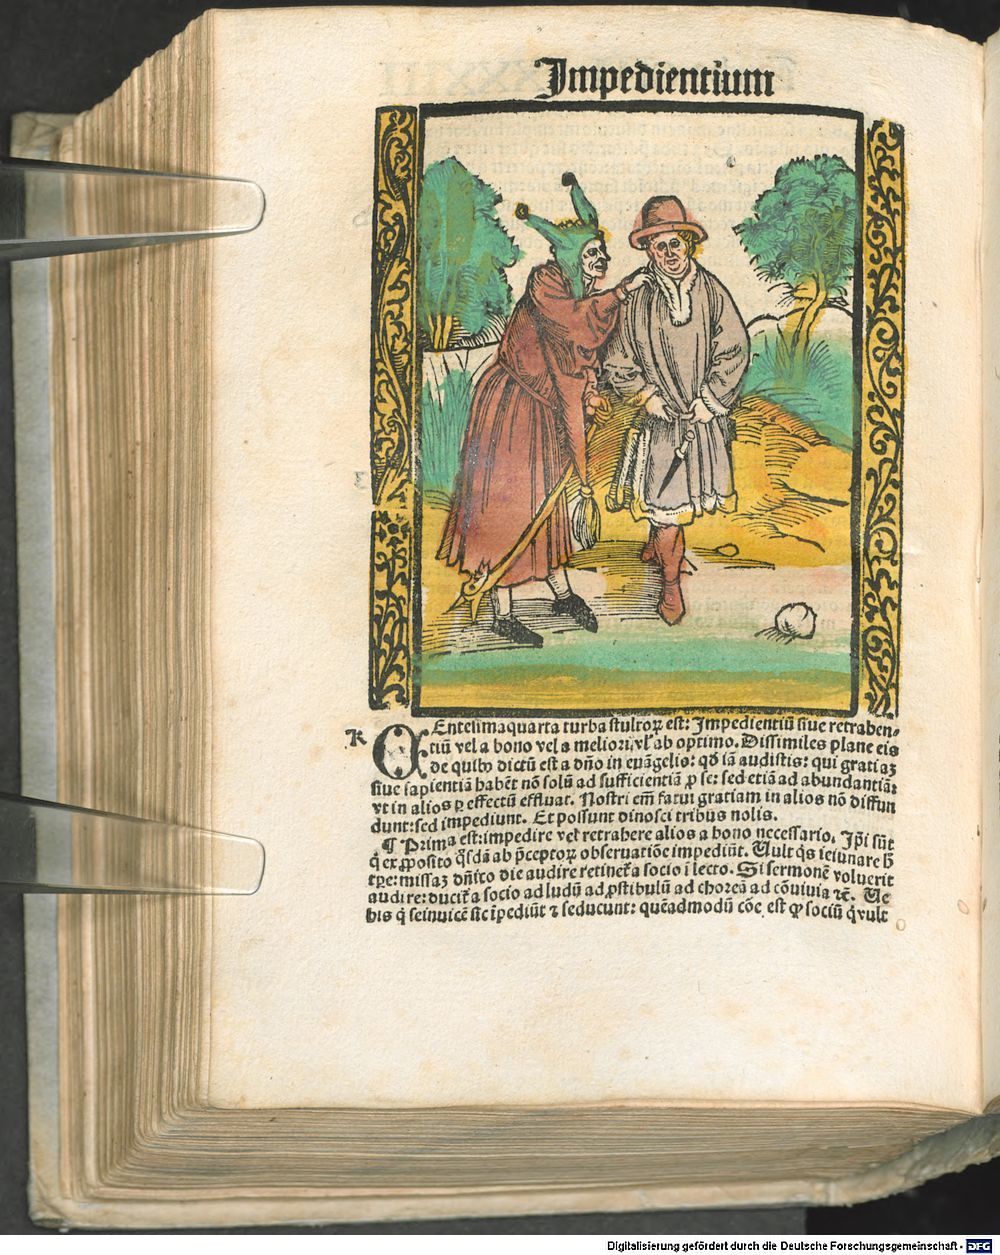 Impedientium
K
CEntesimaquarta turba stultoꝝ est: Impedientiū siue retrahen-
tiū vel a bono vel a meliori, vl' ab optimo. Dissimiles plane eis
de quibꝰ dictū est a dño in euāgelio: qd̄ iā audistis: qui gratiaꝫ
siue sapientiā habēt nō solū ad sufficientiā ꝓ se: sed etiā ad abundantiā:
vt in alios ꝑ effectū effluat. Nostri em̄ fatui gratiam in alios nō diffun
dunt: sed impediunt. Et possunt dinosci tribus nolis.
¶ Prima est: impedire vel retrahere alios a bono necessario. Ip̄i sūt
q̇ ex ꝓposito q̇sdā ab p̄ceptoꝝ obseruatiōe impediūt. Uult q̇s ieiunare
missaꝫ dn̄ico die audire retinet᷑ a socio ī lecto. Si sermonē voluerit
audire: ducit᷑ a socio ad ludū ad ꝓstibulū ad choreā ad cōuiuia ⁊c̄. Ue
his q̇ seinuicē sic īpediūt ⁊ seducunt: quēadmodū cōe est ꝙ sociū q̇ vult
Digitalisierung gefördert durch die Deutsche Forschungsgemeinschaft - DFG